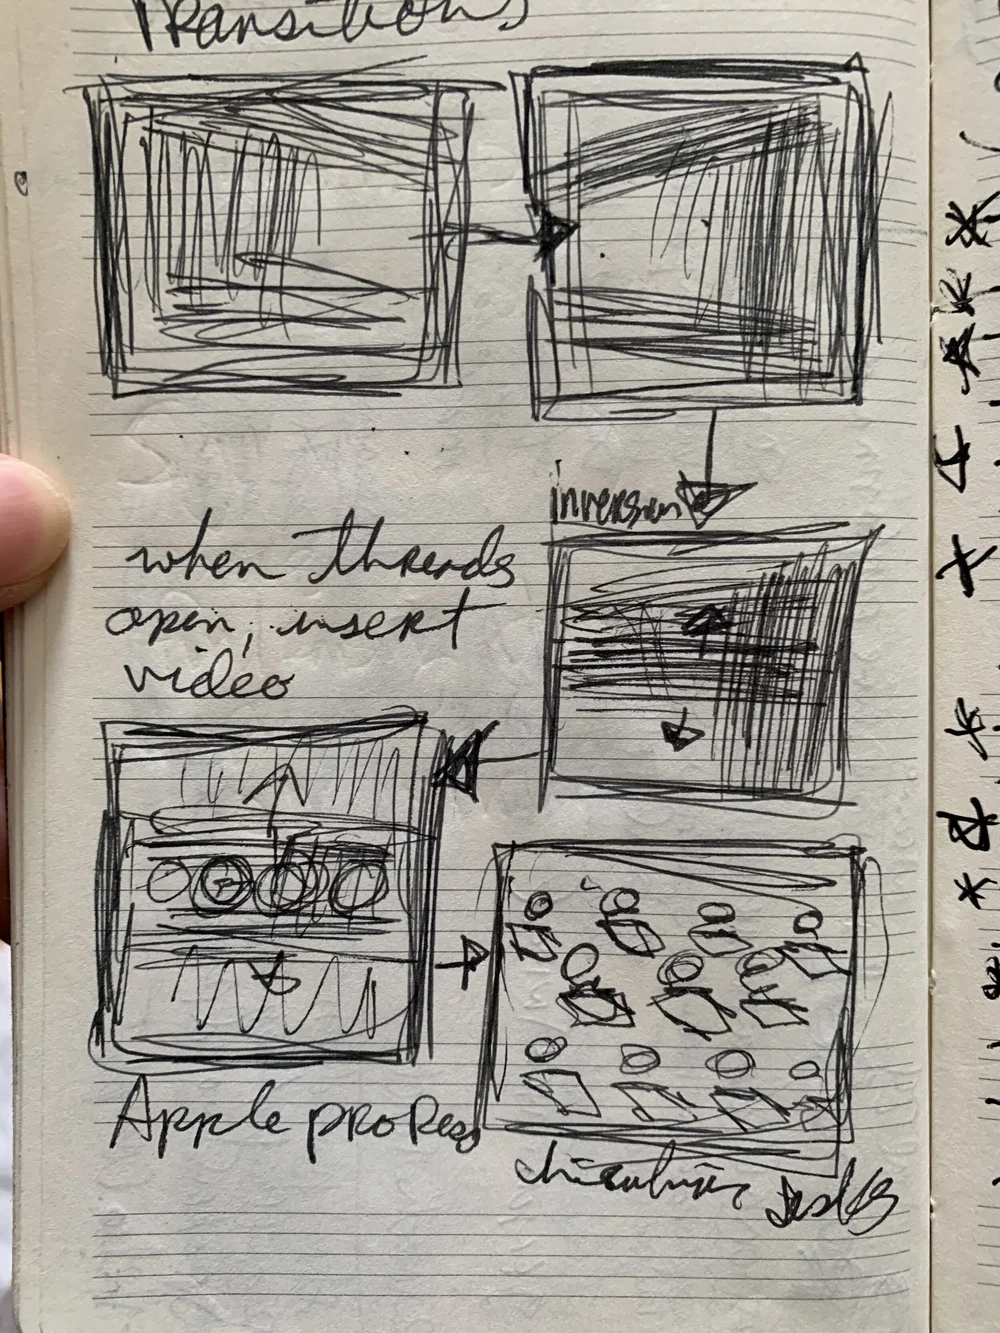 Transitions
inversion
when threads
open, insert
video
Apple prores
desks